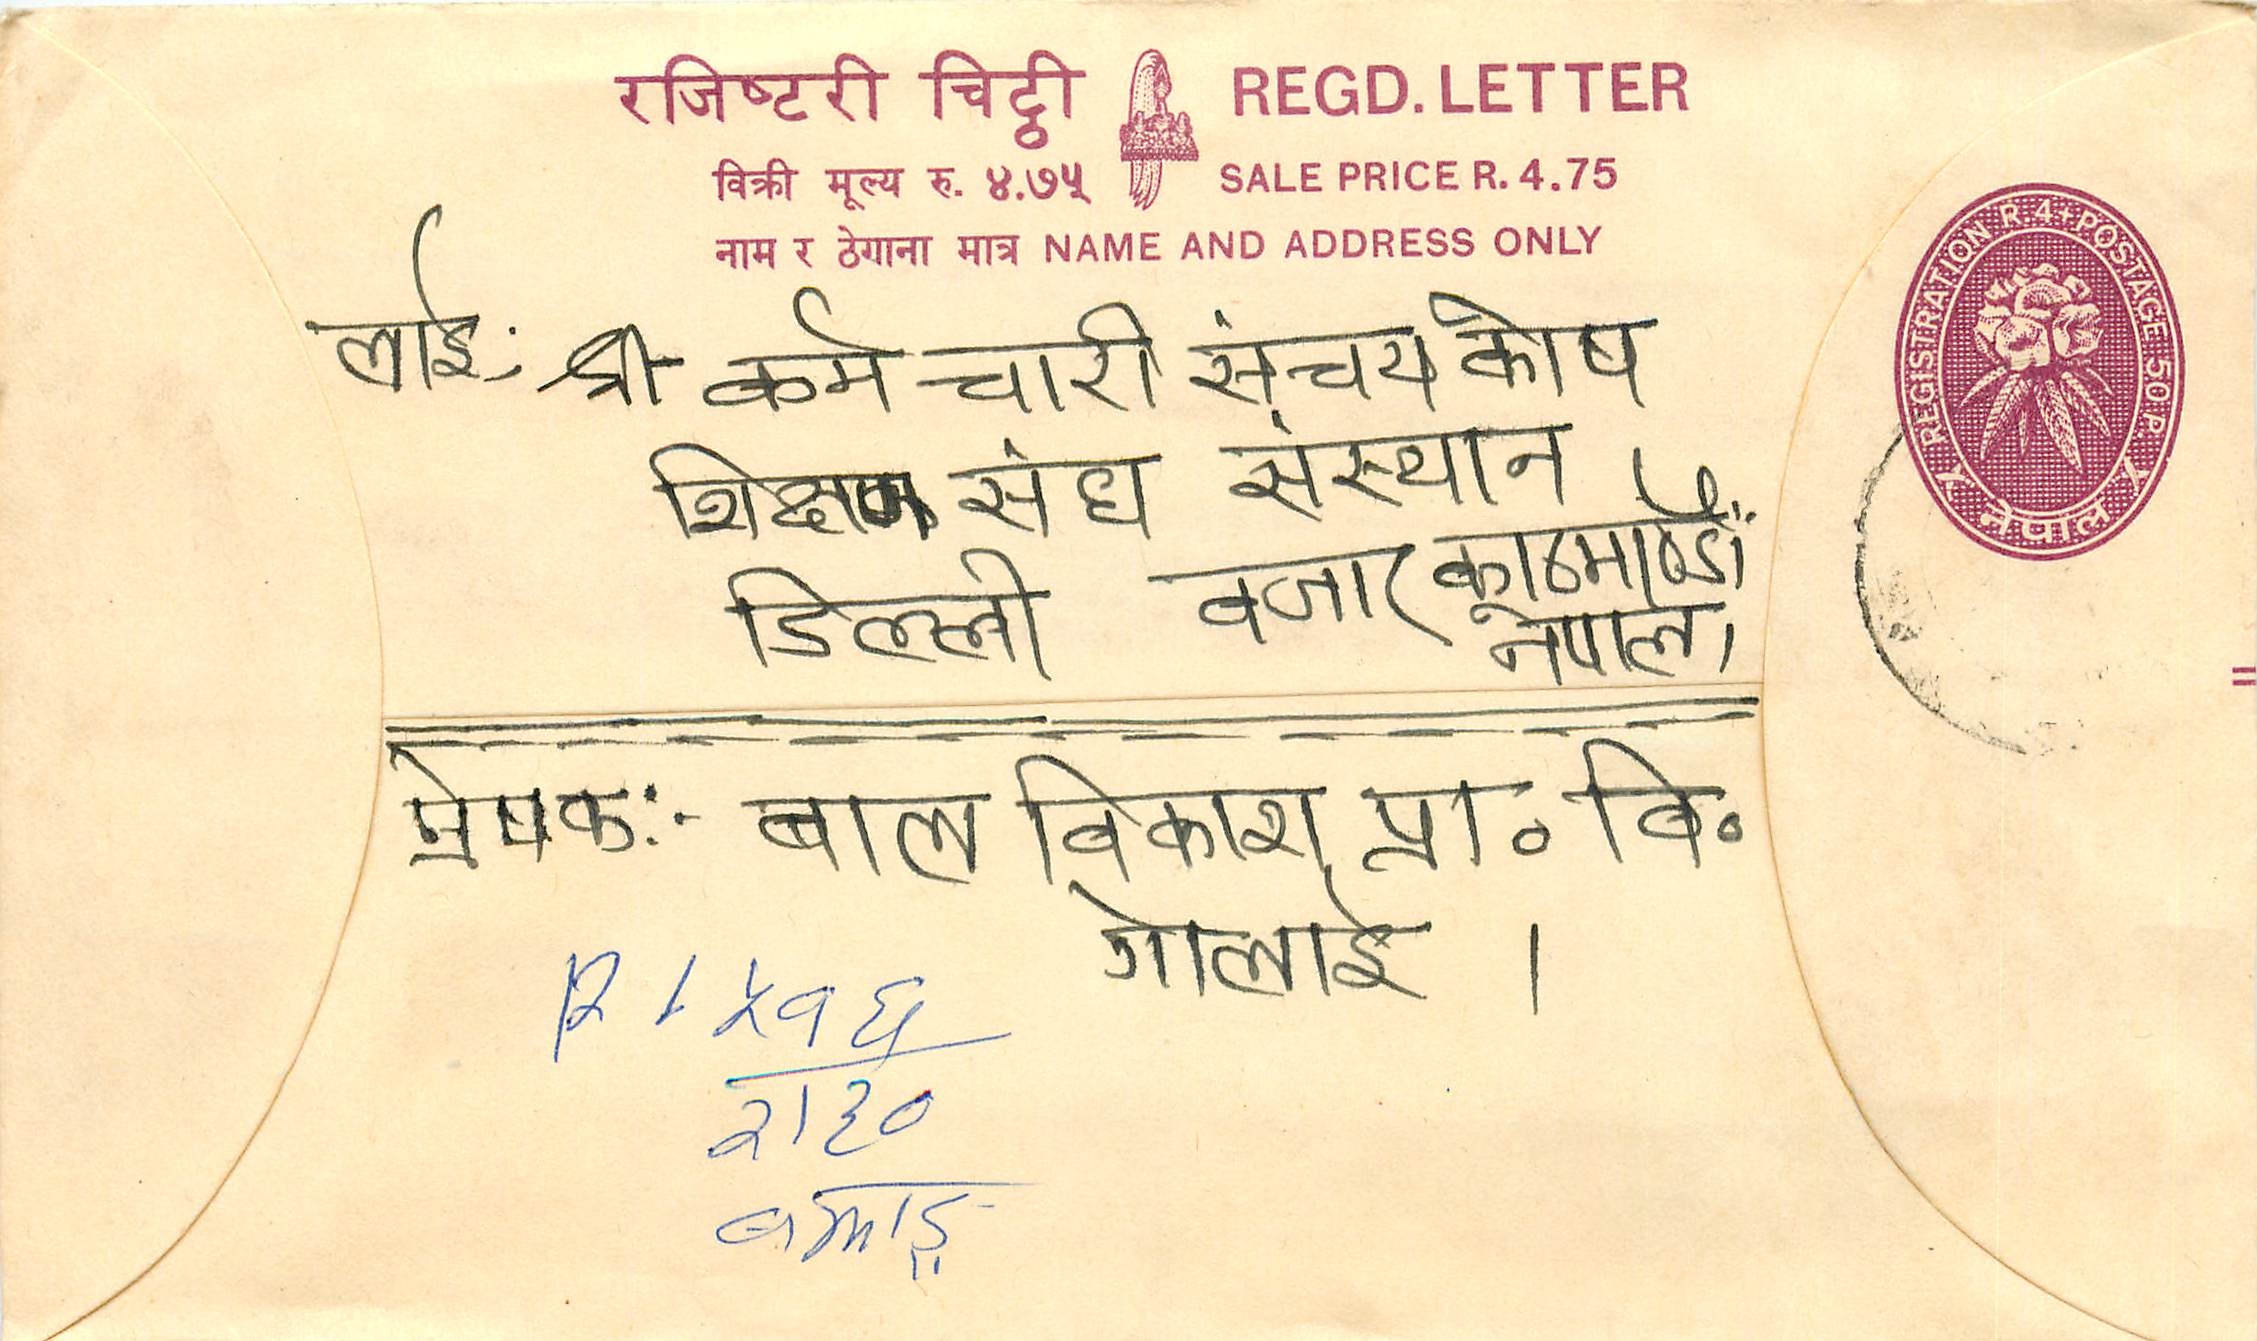 रजिष्टरी चिट्ठी REGD. LETTER
विक्री मूल्य रु. ४.७५ SALE PRICE R. 4.75
नाम र ठेगाना मात्र NAME AND ADDRESS ONLY
REGISTRATION R. 4 + POSTAGE 50 P.
नेपाल
लाई: श्री कर्मचारी संचय कोष
शिक्षण संघ संस्थान
डिल्ली बजार काठमाण्डौं
नेपाल।
प्रेषक:- बाल विकाश प्रा० वि०
गोलाई ।
५१६
२।३०
बझाङ्ग